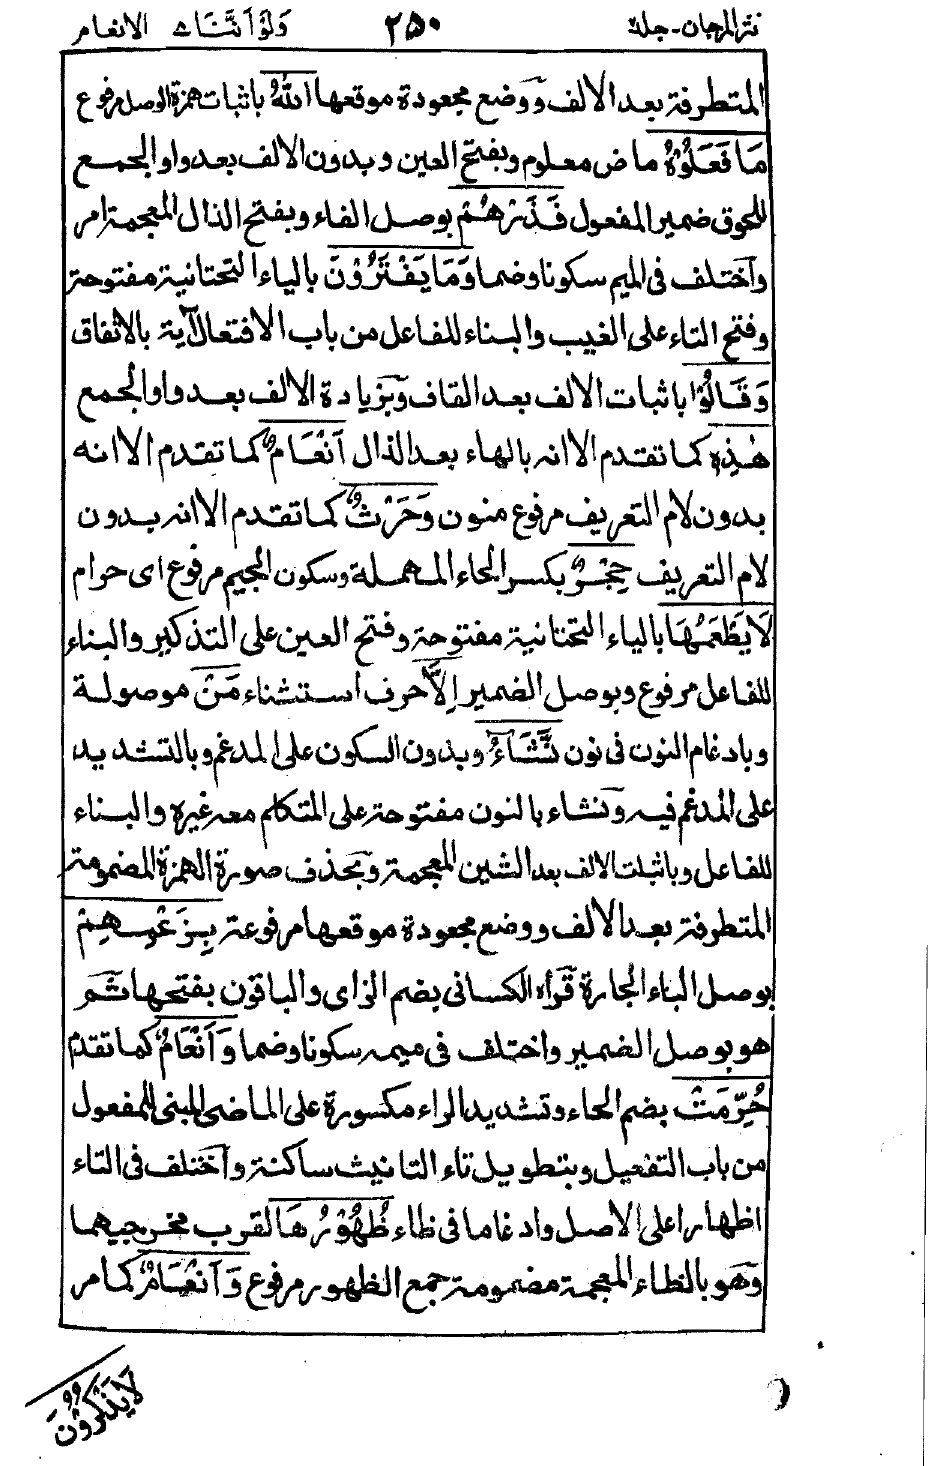 نثر المرجان - جلد ٢٥٠ وَلَوْ اَنَّنَا الانعام
المتطرفة بعد الالف ووضع مجعودة موقعها اللّٰهُ باثبات همزة الوصل مرفوع
مَا فَعَلُوْهُ ماض معلوم وبفتح العين وبدون الالف بعد واو الجمع
للحوق ضمير المفعول فَذَرْهُمْ بوصل الفاء وبفتح الذال المعجمة امر
واختلف فى الميم سكونا وضما وَمَا يَفْتَرُوْنَ بالياء التحتانية مفتوحة
وفتح التاء على الغيب والبناء للفاعل من باب الافتعال آية بالاتفاق
وَقَالُوْا باثبات الالف بعد القاف وبزيادة الالف بعد واو الجمع
هٰذِهٖ كما تقدم الا انه بالهاء بعد الذال اَنْعَامٌ كما تقدم الا انه
بدون لام التعريف مرفوع منون وَحَرْثٌ كما تقدم الا انه بدون
لام التعريف حِجْرٌ بكسر الحاء المهملة وسكون الجيم مرفوع اى حرام
لَا يَطْعَمُهَا بالياء التحتانية مفتوحة وفتح العين على التذكير والبناء
للفاعل مرفوع وبوصل الضمير اِلَّا حرف استثناء مَنْ موصولة
وبادغام النون فى نون نَّشَآءُ وبدون السكون على المدغم وبالتشديد
على المدغم فيه ونشاء بالنون مفتوحة على المتكلم معه غيره والبناء
للفاعل وباثبات الالف بعد الشين المعجمة وبحذف صورة الهمزة المضمومة
المتطرفة بعد الالف ووضع مجعودة موقعها مرفوعة بِزَعْمِهِمْ
بوصل الباء الجارة قرأه الكسائى بضم الزاى والباقون بفتحها ثم
هو بوصل الضمير واختلف فى ميمه سكونا وضما وَاَنْعَامٌ كما تقدم
حُرِّمَتْ بضم الحاء وتشديد الراء مكسورة على الماضى المبنى للمفعول
من باب التفعيل وبتطويل تاء التانيث ساكنة واختلف فى التاء
اظهارا على الاصل وادغاما فى ظاء ظُهُوْرُهَا لقرب مخرجيهما
وهو بالظاء المعجمة مضمومة جمع الظهور مرفوع وَاَنْعَامٌ كما مر
لَا يَذْكُرُوْنَ